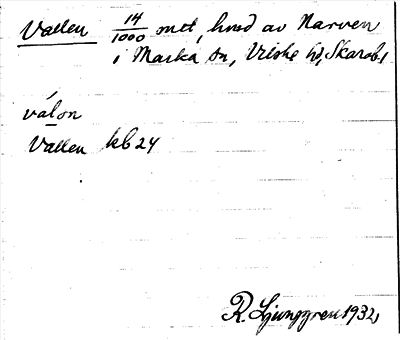 Vallen 14/1000 mtl, hmd av Narven
i Marka sn, Vilske hd, Skarab.
válon
Vallen kb 24
R. Ljunggren 1932